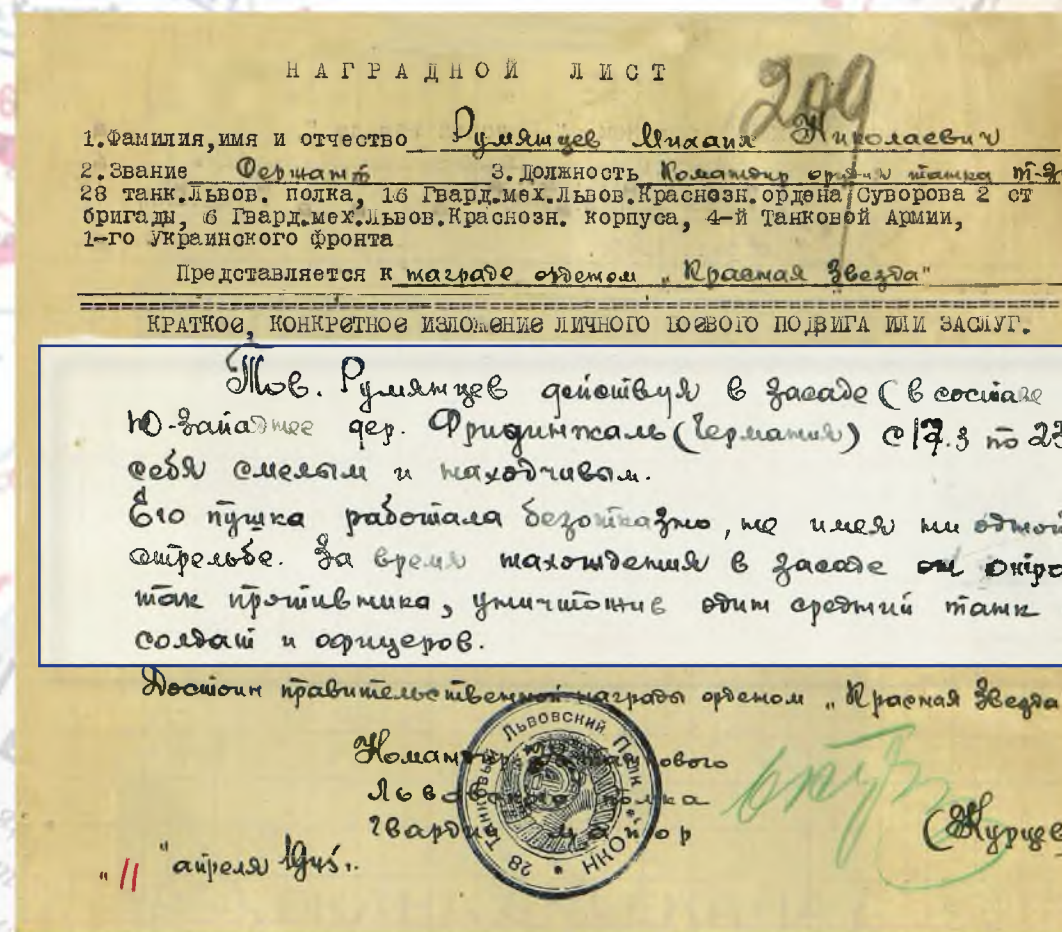 НАГРАДНОЙ ЛИСТ
209
1.Фамилия,имя и отчество Румянцев Михаил Николаевич
2.Звание Сержант 3.Должность Командир орудия танка Т-3
28 танк.Львов. полка, 16 Гвард.мех.Львов.Краснозн.ордена Суворова 2 ст
бригады, 6 Гвард.мех.Львов.Краснозн. корпуса, 4-й Танковой Армии,
1-го Украинского фронта
Представляется к награде орденом „Красная Звезда"
КРАТКОЕ, КОНКРЕТНОЕ ИЗЛОЖЕНИЕ ЛИЧНОГО БОЕВОГО ПОДВИГА ИЛИ ЗАСЛУГ.
Тов. Румянцев действуя в засаде (в составе
Ю-западнее дер. Фридинталь (Германия) с 17.3 по 23
себя смелым и находчивым.
Его пушка работала безотказно, не имея ни одной
стрельбе. За время нахождения в засаде он
так противника, уничтожив один средний танк
солдат и офицеров.
Достоин правительственной награды орденом „Красная Звезда
Командир танкового
Львовского полка
Гвардии майор
(Курцев
"11" апреля 1945г.
28 Танковый Львовский Полк * НКО *